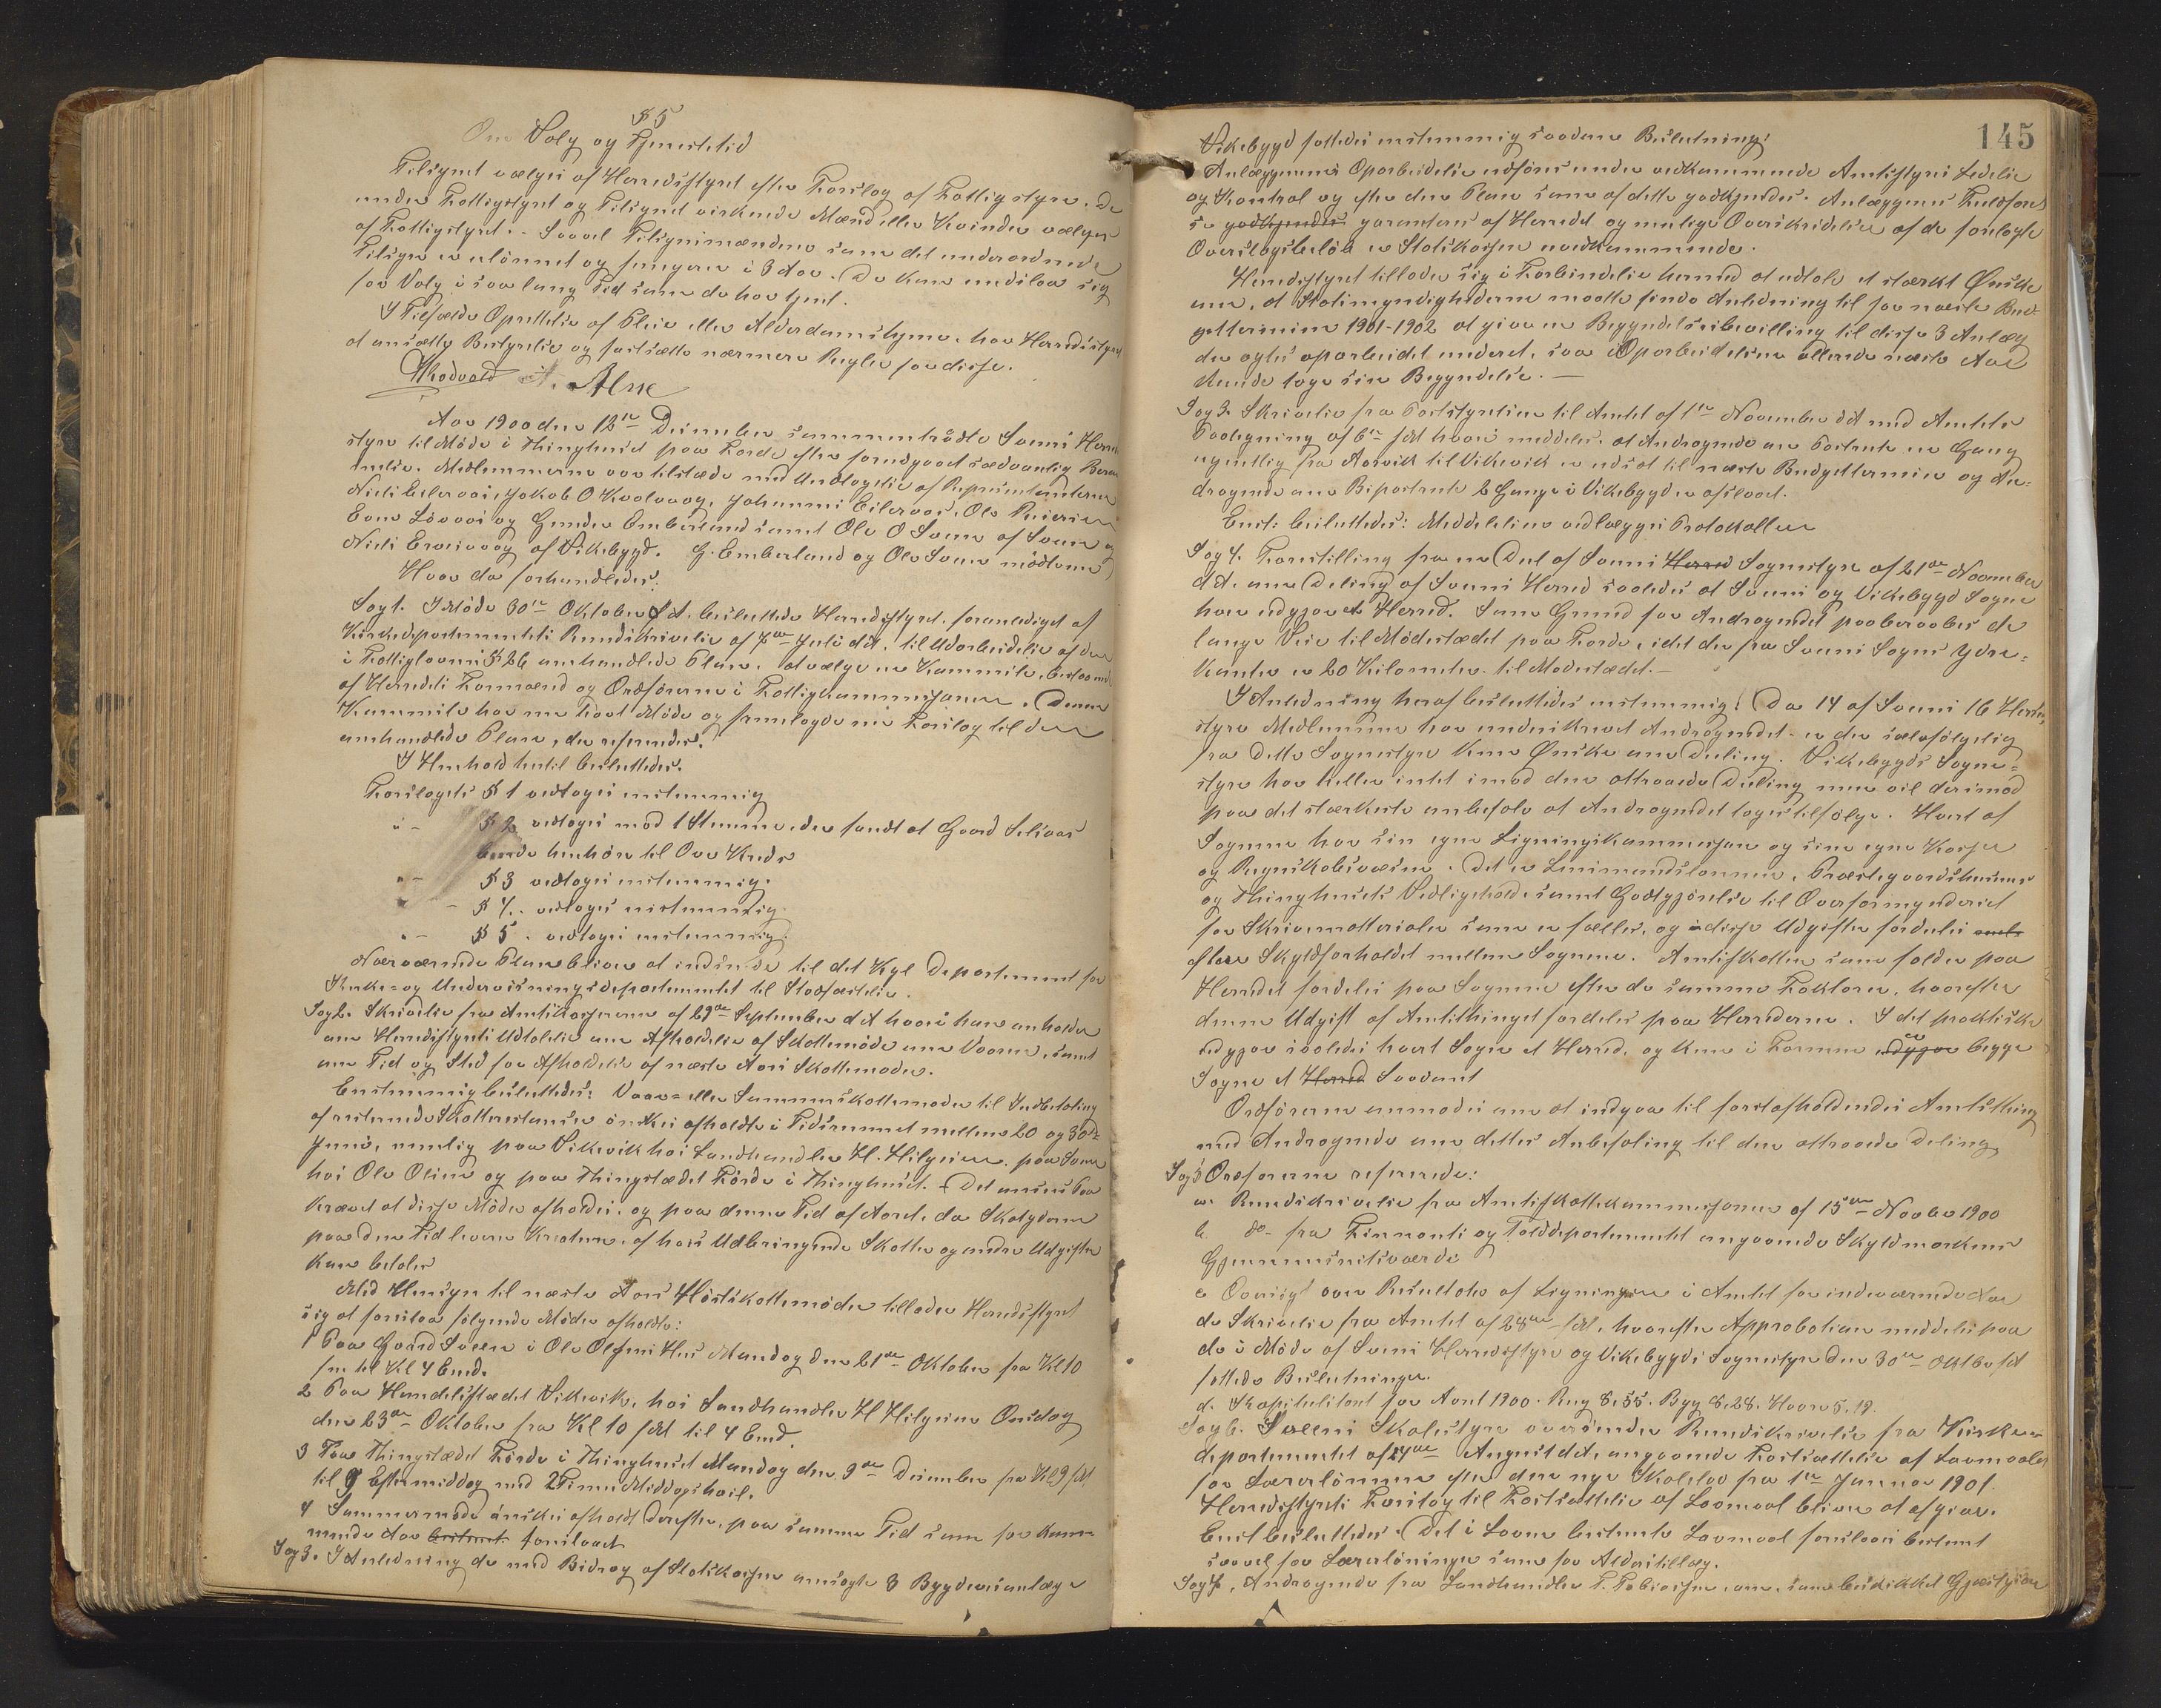 § 5
Om Valg og Tjenestetid
Tilsynet vælges af Herredsstyret efter Forslag af Fattigstyre. De
under Fattigstyret og Tilsynet virkende Mænd eller Kvinder vælges
af Fattigstyret. Saavel Tilsynsmændene som det underordnede
Tilsyn er ulønnet og fungerer i 3 Aar. De kan undslaa sig
for Valg i saa lang Tid som de har tjent.
I Tilfælde Oprettelse af Pleie eller Alderdomshjem, har Herredsstyret
at ansætte Bestyrelse og fastsætte nærmere Regler for disse.
Aar 1900 den 12te December sammentraadte Sveens Herreds
styre til Møde i Thinghuset paa Førde efter forudgaaet sædvanlig Beram
melse. Medlemmerne var tilstede med Undtagelse af Repræsentanterne
Niels Eileraas, Jakob O Kvalvaag, Johannes Eileraas, Ole
og Gunder Emberland samt Ole O Sveen af Sveen og
Niels af Vikebygd. G. Emberland og Ole Sveen mødte
Hvor da forhandledes:
Sag 1. I Møde 30te Oktober d.A. besluttede Herredsstyret, foranlediget af
Kirkedepartementets Rundskrivelse af 7de Juli d.A. til Udarbeidelse af den
i Fattiglovens § 26 omhandlede Plan, at vælge en Kommite, bestaaende
af Herredets Formænd og Ordførerne i Fattigkommissionen. Denne
Kommite har nu havt Møde og fremlagde sit Forslag til den
omhandlede Plan, der refereredes.
I Henhold hertil besluttedes.
Forslagets § 1 vedtages enstemmig
" - § 2 vedtages mod 1 Stemme, der fandt at Gaard Selsaas
burde henhøre til Kreds
" - § 3 vedtages enstemmig.
" - § 4. vedtages enstemmig.
" - § 5. vedtages enstemmig.
Nærværende Plan bliver at indsende til det Kgl Departement for
Kirke- og Undervisningsdepartementet til Stadfæstelse.
Sag 2. Skrivelse fra Amtskassereren af 29de September d.A hvori han anholder
om Herredsstyrets Udtalelse om Afholdelse af Skattemøde om Vaaren, samt
om Tid og Sted for Afholdelse af næste Aars Skattemøder.
Enstemmig besluttedes: Vaar- eller Sommerskattemøder til Indbetaling
af resterende Skatterestancer ønskes afholdte i Tidsrummet mellem 20 og 30te
Juni, nemlig paa Vikevik hos Landhandler H. Hilgesen, paa Sveen
hos Ole Olsen og paa Thingstedet Førde i Thinghuset. Det ansees
krævet at disse Møder afholdes, og paa denne Tid af Aaret, da Skatyderne
paa den Tid lever af hvis Udbringende Skatter og andre Udgifter
kan betales
Med Hensyn til næste Aars Høstskattemøder tillader Herredsstyret
sig at foreslaa følgende Møder afholdte:
1 Paa Gaard Sveen i Ole Olsens Hus Mandag den 21de Oktober fra Kl 10
fm til Kl 4 Emd.
2 Paa Handelsstedet Vikevik, hos Landhandler H Hilgesen Onsdag
den 23de Oktober fra Kl 10 fM til 4 Emd.
3 Paa Thingstedet Førde i Thinghuset Mandag den 9de December fra Kl 9 fM
til 9 Eftermiddag med 2 Timers Middagshvil.
4 Sommermøde ønskes afholdt derefter, paa samme Tid som for kom-
mende Aar bestemt foreslaaet
Sag 3. I Anledning de med Bidrag af Statskassen ansøgte 3 Bygdeveianlæg i
145
Vikebygd fattedes enstemmig saadan Beslutning:
Anlæggenes Oparbeidelse udføres under vedkommende Amtsstyres Ledelse
og Kontrol og efter den Plan som af dette godkjendes. Anlæggenes Fuldførel
se godkjendes garanteres af Herredet og mulige Overskridelser af de foreslagte
Overslagsbeløb er Statskassen uvedkommende.
Herredsstyret tillader sig i Forbindelse hermed at udtale et stærkt Ønske
om, at Statsmyndighederne maatte finde Anledning til for næste Bud-
gettermin 1901-1902 at give en Begyndelsesbevilling til disse 3 Anlæg
der agtes oparbeidet underet, saa Oparbeidelsen allerede næste Aar
kunde tage sin Begyndelse. —
Sag 3. Skrivelse fra Poststyrelsen til Amtet af 1ste November d.A med Amtets
Paategning af 6te f.M hvori meddeles, at Andragende om Postrute en Gang
ugentlig fra Aarvik til Vikevik er udsat til næste Budgettermin og An-
dragende om Bipostrute 2 Gange i Vikebygd er afslaaet.
Enst: besluttedes: Meddelelsen vedlægges Protokollen
Sag 4. Forestilling fra en Del af Sveens Herred Sognestyre af 21de November
d.A. om Deling af Sveens Herred saaledes at Sveens og Vikebygd Sogne
hver udgjør et Herred. Som Grund for Andragendet paaberaabes de
lange Veie til Mødestedet paa Førde, idet der fra Sveens Sogns Ydre-
kanter er 20 Kilometer til Mødestedet. —
I Anledning heraf besluttedes enstemmig: Da 14 af Sveens 16 Herreds
styre Medlemmer har underskrevet Andragendet er der selvfølgelig
fra dette Sognestyre kun Ønske om Deling. Vikebygds Sogne-
styre har heller intet imod den attraaede Deling men vil derimod
paa det stærkeste anbefale at Andragendet tages tilfølge. Hvert af
Sognene har sin egne Ligningskommission og sine egne Kasser
og Regnskabsvæsen. Det er Lensmandslønnen, Præstegaardshusenes
og Thinghusets Vedligehold samt Godtgjørelse til Overformynderiet
for Skrivematerialer som er fælles, og disse Udgifter fordeles
efter Skyldforholdet mellem Sognene. Amtsskatten som falder paa
Herredet fordeles paa Sognene efter de samme Faktorer, hvorefter
denne Udgift af Amtsthinget fordeles paa Herrederne. I det praktiske
udgjør saaledes hvert Sogn et Herred, og kun i Formen er udgjør begge
Sogne et Herred Saadant
Ordføreren anmodes om at indgaa til førstafholdendes Amtsthing
med Andragende om dettes Anbefaling til den attraaede Deling
Sag 5 Ordføreren refererede:
a. Rundskrivelse fra Amtsskattekommissionen af 15de Novbr 1900
b do- fra Finants og Tolddepartementet angaaende Skyldmarkens
Gjennemsnitsværdi
c Oversigt over Resultatet af Ligningen i Amtet for indeværende Aar
do Skrivelse fra Amtet af 28de f.M., hvorefter Approbation meddeles paa
de i Møde af Sveens Herredsstyre og Vikebygds Sognestyre den 30te Oktbr f.A
fattede Beslutninger.
d. Kapitelstakst for Aaret 1900. Rug 8.55. Byg 8.28. Havre 5.19.
Sag 6. Sveens Skolestyre oversender Rundskrivelse fra Kirke-
departementet af 24de August d.A. angaaende Fastsættelse af Lavmaalet
for Lærerlønnen efter den nye Skolelov fra 1ste Januar 1901.
Herredsstyrets Forslag til Fastsættelse af Lavmaal bliver at afgive.
Enst besluttedes: Det i Loven bestemte Lavmaal foreslaaes bestemt
saavel for Lærerlønninger som for Alderstillæg.
Sag 7. Andragende fra Landhandler T. Tobiassen, om, som beskikket Gjæstgiver